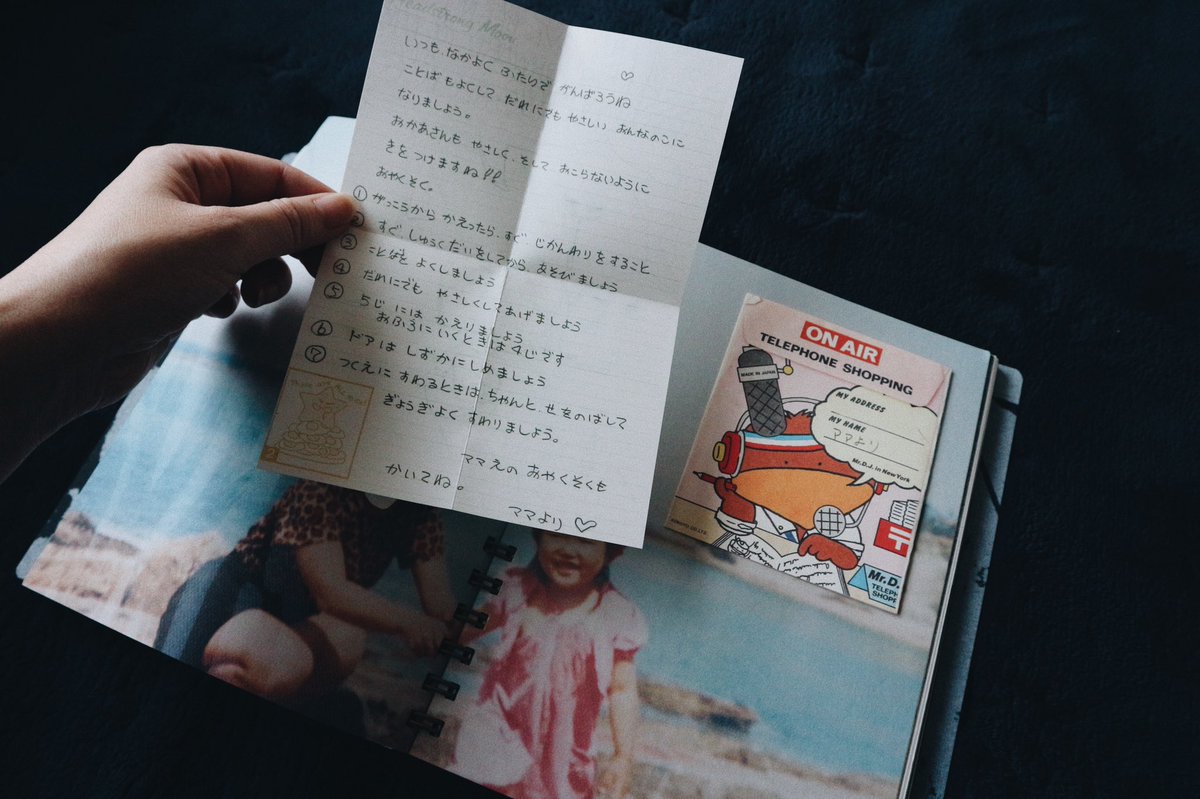 Headstrong Moon
いつも、なかよく ふたりで がんばろうね
ことばもよくして だれにでも やさしい おんなのこに
なりましょう。
おかあさんも やさしく、そして おこらないように
きをつけますね!!
おやくそく。
① がっこうから かえったら、すぐ じかんわりをすること
② すぐ、しゅくだいをしてから、あそびましょう
③ ことばを よくしましょう
④ だれにでも やさしくしてあげましょう
⑤ 5じ には かえりましょう
おふろに いくときは 4じです
⑥ ドアは しずかにしめましょう
⑦ つくえに すわるときは、ちゃんと、せをのばして
ぎょうぎよく すわりましょう。
ママえの おやくそくも
かいてね。
ママより
ON AIR
TELEPHONE SHOPPING
MADE IN JAPAN
MY ADDRESS
MY NAME
ママより
Mr. D.J. in New York
Mr.D.
TELEPH
SHOPP